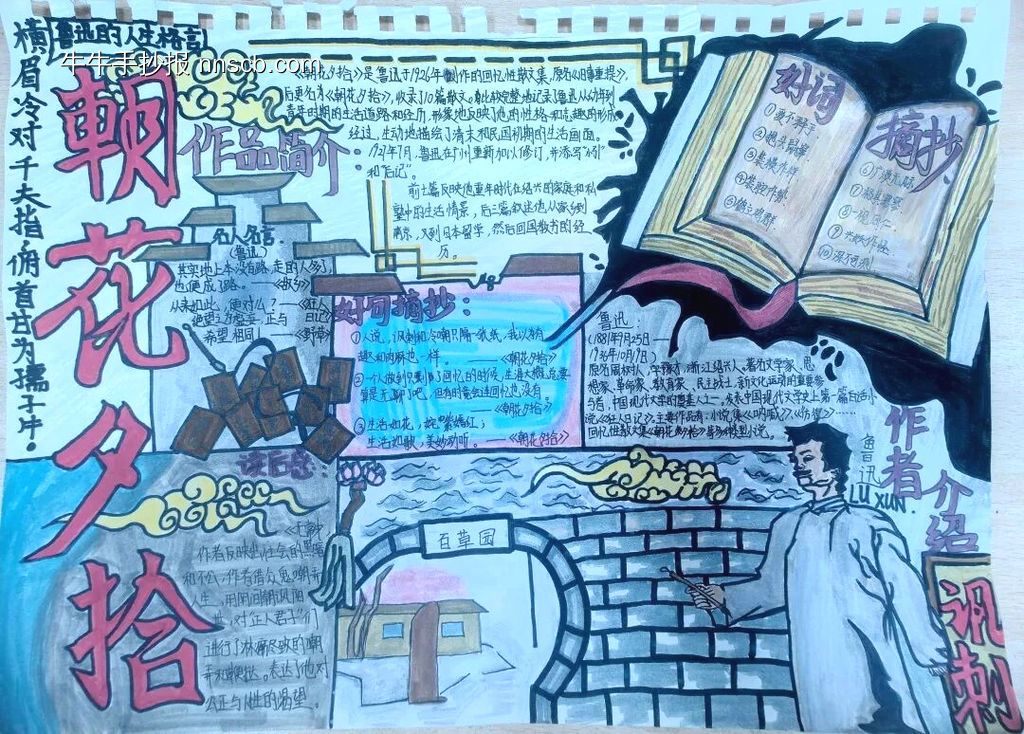 鲁迅的人生格言
横眉冷对千夫指，俯首甘为孺子牛。
牛牛手抄报 nnscb.com
朝花夕拾
作品简介
《朝花夕拾》是鲁迅于1926年创作的回忆性散文集，原名《旧事重提》，
后更名为《朝花夕拾》，收录了10篇散文。
青年时期的生活道路和经历，形象地反映了他的性格和志趣的形成
经过，生动地描绘了清末和民国初期的生活画面。
1927年7月，鲁迅在广州重新加以修订，并添写“小引”
和“后记”。
前七篇反映他童年时代在绍兴的家庭和私
塾中的生活情景，后三篇叙述他从家乡到
南京，又到日本留学，然后回国教书的经
历。
好词
摘抄
①爱不释手
③装模作样
④装腔作势
⑤鹤立鸡群
⑩深不可测
名人名言
（鲁迅）
其实地上本没有路，走的人多了，
也便成了路。——《故乡》
从来如此，便对么？——《狂人
日记》
绝望之为虚妄，正与
希望相同。——《野草》
好句摘抄：
①人说，讽刺和冷嘲只隔一张纸，我以为有
趣和肉麻也一样。——《朝花夕拾》
②一个人做到只剩了回忆的时候，生涯大概总要
算是无聊了吧，但有时竟会连回忆也没有。
——《朝花夕拾》
③生活如花，姹紫嫣红；
生活如歌，美妙动听。——《朝花夕拾》
鲁迅：
（1881年9月25日——
1936年10月19日）
原名周樟寿，浙江绍兴人，著名文学家、思
想家、革命家、教育家、民主战士，新文化运动的重要参
与者，中国现代文学的奠基人之一。发表中国现代文学史上第一篇白话小
说《狂人日记》。主要作品有：小说集《呐喊》、《彷徨》……
回忆性散文集《朝花夕拾》等
作者介绍
鲁迅
LU XUN.
读后感
作者反映出社会的黑暗
和不公，作者借
人生，用阴间
世，对正人君子们
进行了淋漓尽致的嘲
弄和鞭挞。表达了他对
公正与人性的渴望。
百草园
讽刺